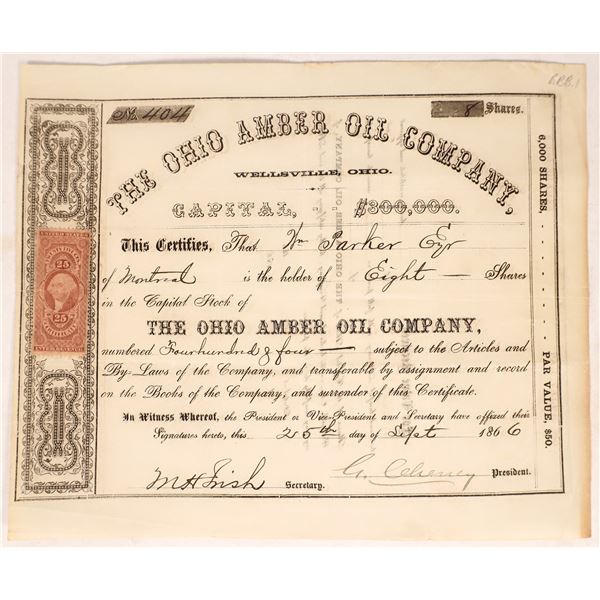 B.R.B.1
No. 404
8 Shares.
THE OHIO AMBER OIL COMPANY,
WELLSVILLE, OHIO.
CAPITAL, $300,000.
This Certifies, That Wm Parker Eyr
of Montreal is the holder of Eight — Shares
in the Capital Stock of
THE OHIO AMBER OIL COMPANY,
numbered Fourhundred & four — subject to the Articles and
By-Laws of the Company, and transferable by assignment and record
on the Books of the Company, and surrender of this Certificate.
In Witness Whereof, the President or Vice-President and Secretary have affixed their
Signatures hereto, this 25th day of Sept 1866
M H Irish Secretary. G. Cheney President.
6,000 SHARES. PAR VALUE, $50.
UNITED STATES
25 25
CERTIFICATE
25 25
INTER. REVENUE